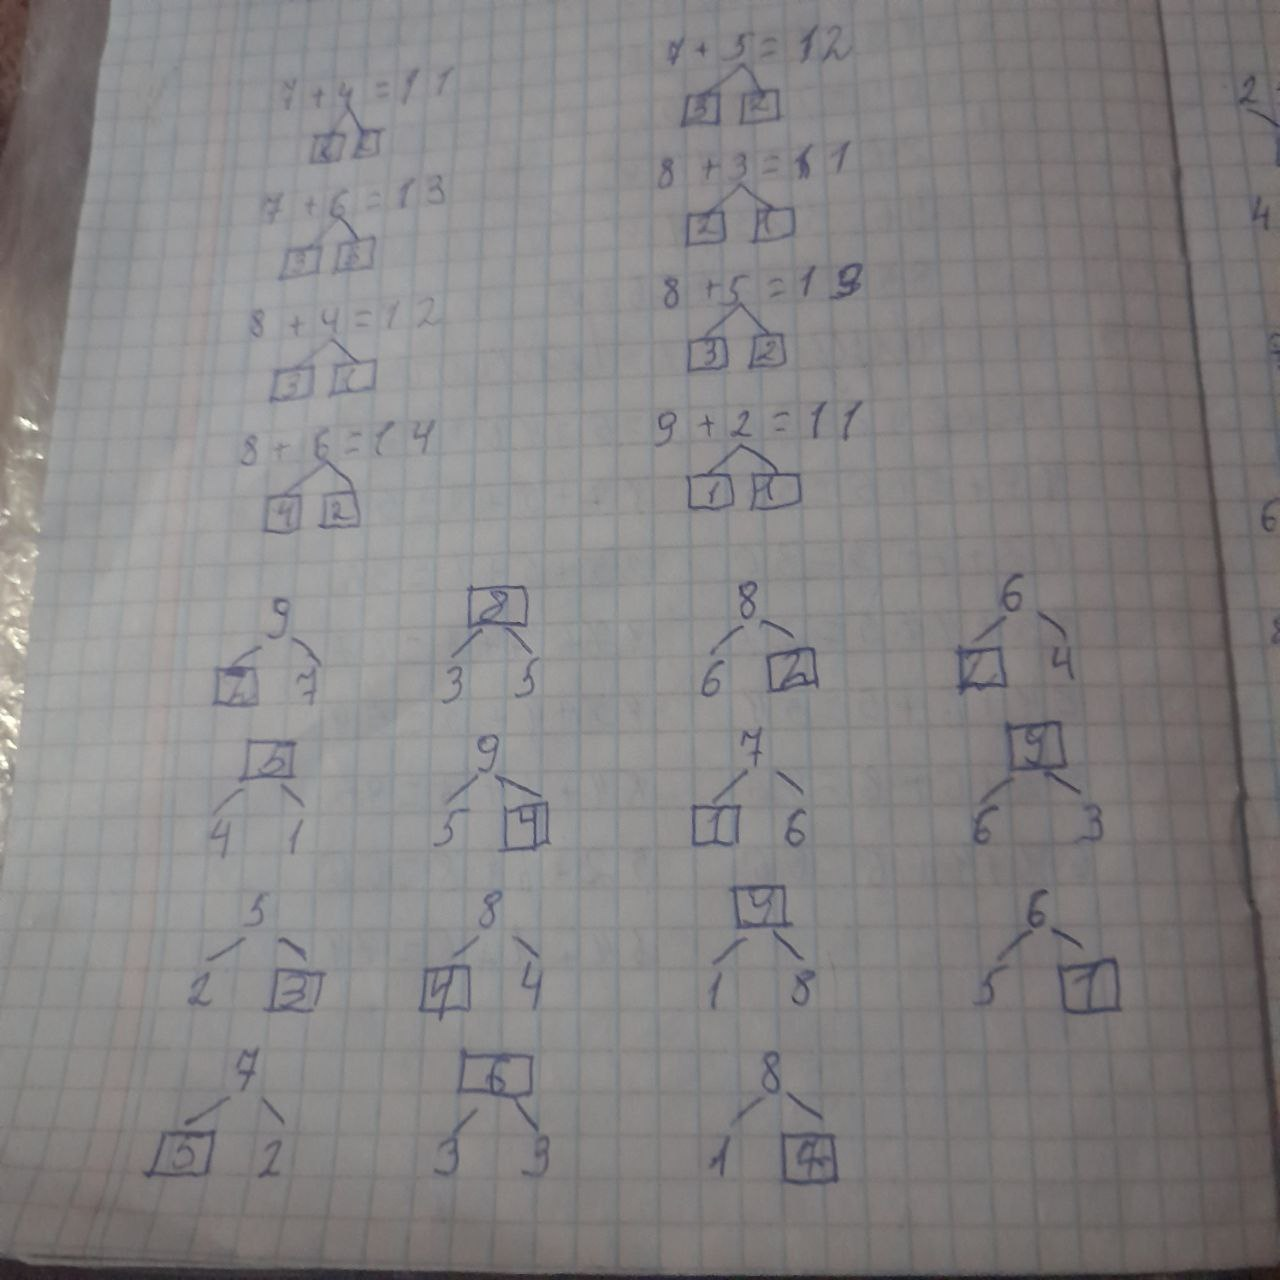 7 + 5 = 12
7 + 4 = 11
3 2
8 + 3 = 11
7 + 6 = 13
2 1
3
8 + 5 = 13
8 + 4 = 12
3 2
3 1
9 + 2 = 11
8 + 6 = 14
1 1
4 2
9 8 8 6
2 7 3 5 6 2 2 4
5 9 7 9
4 1 5 4 1 6 6 3
5 8 9 6
2 3 4 4 1 8 5 1
7 6 8
5 2 3 3 1 7
2
4
6